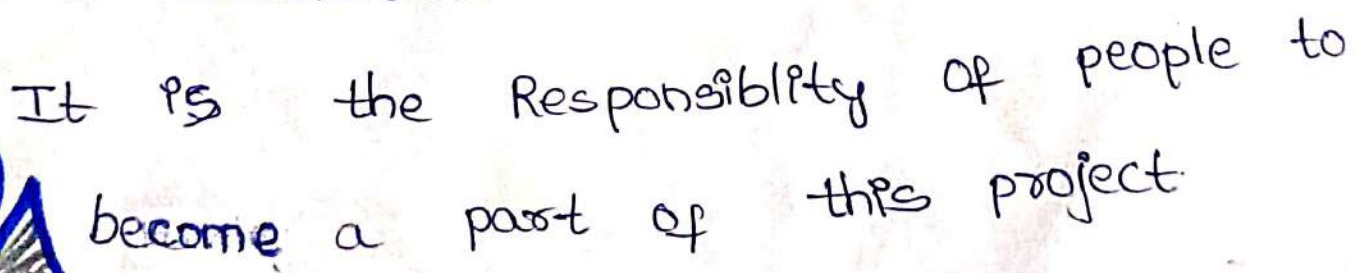 It is the Responsiblity of people to
become a part of this project.